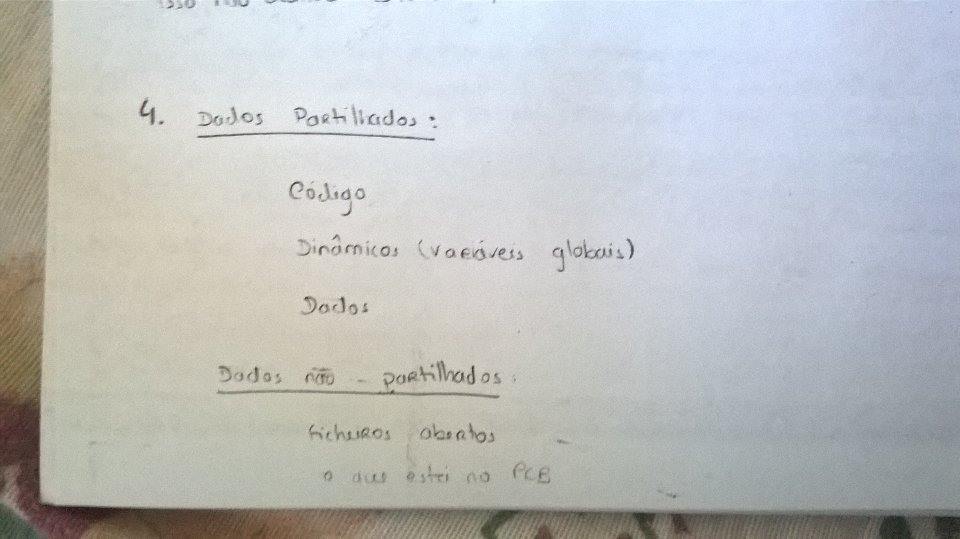 isso não
4. Dados Partilhados:
Código
Dinâmicos (variáveis globais)
Dados
Dados não - partilhados:
ficheiros abertos
o que está no PCB